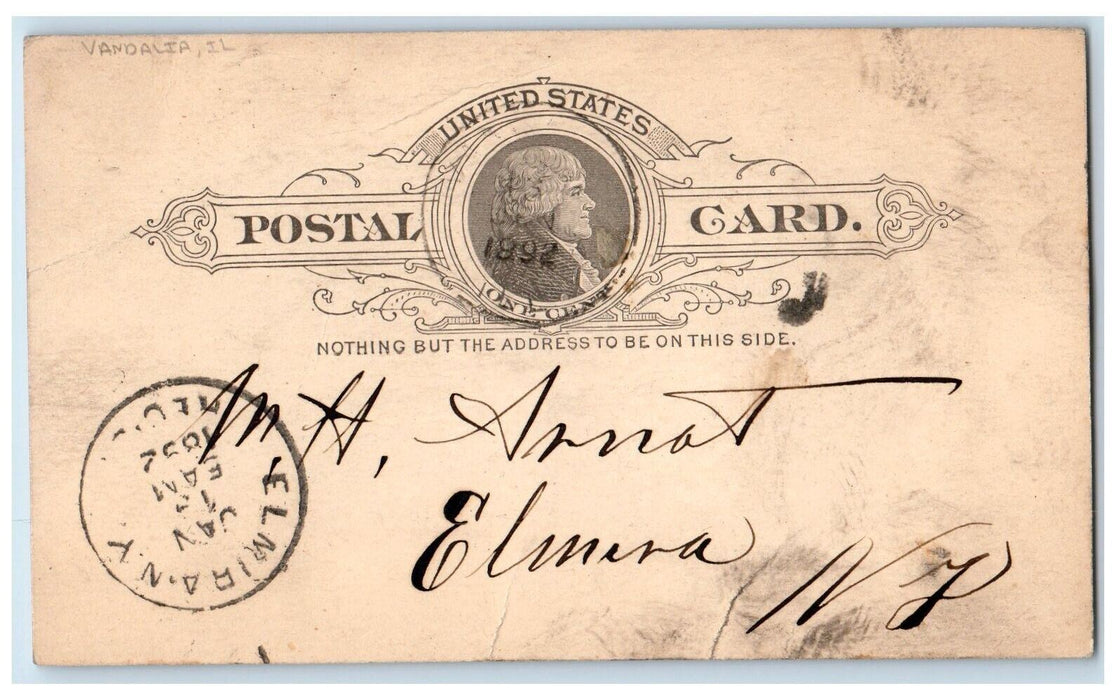 VANDALIA, IL
UNITED STATES
POSTAL CARD.
1892
ONE CENT
NOTHING BUT THE ADDRESS TO BE ON THIS SIDE.
M. H. Arnot
Elmira
N Y
ELMIRA. N. Y.
JAN
AM
1892
REC'D.